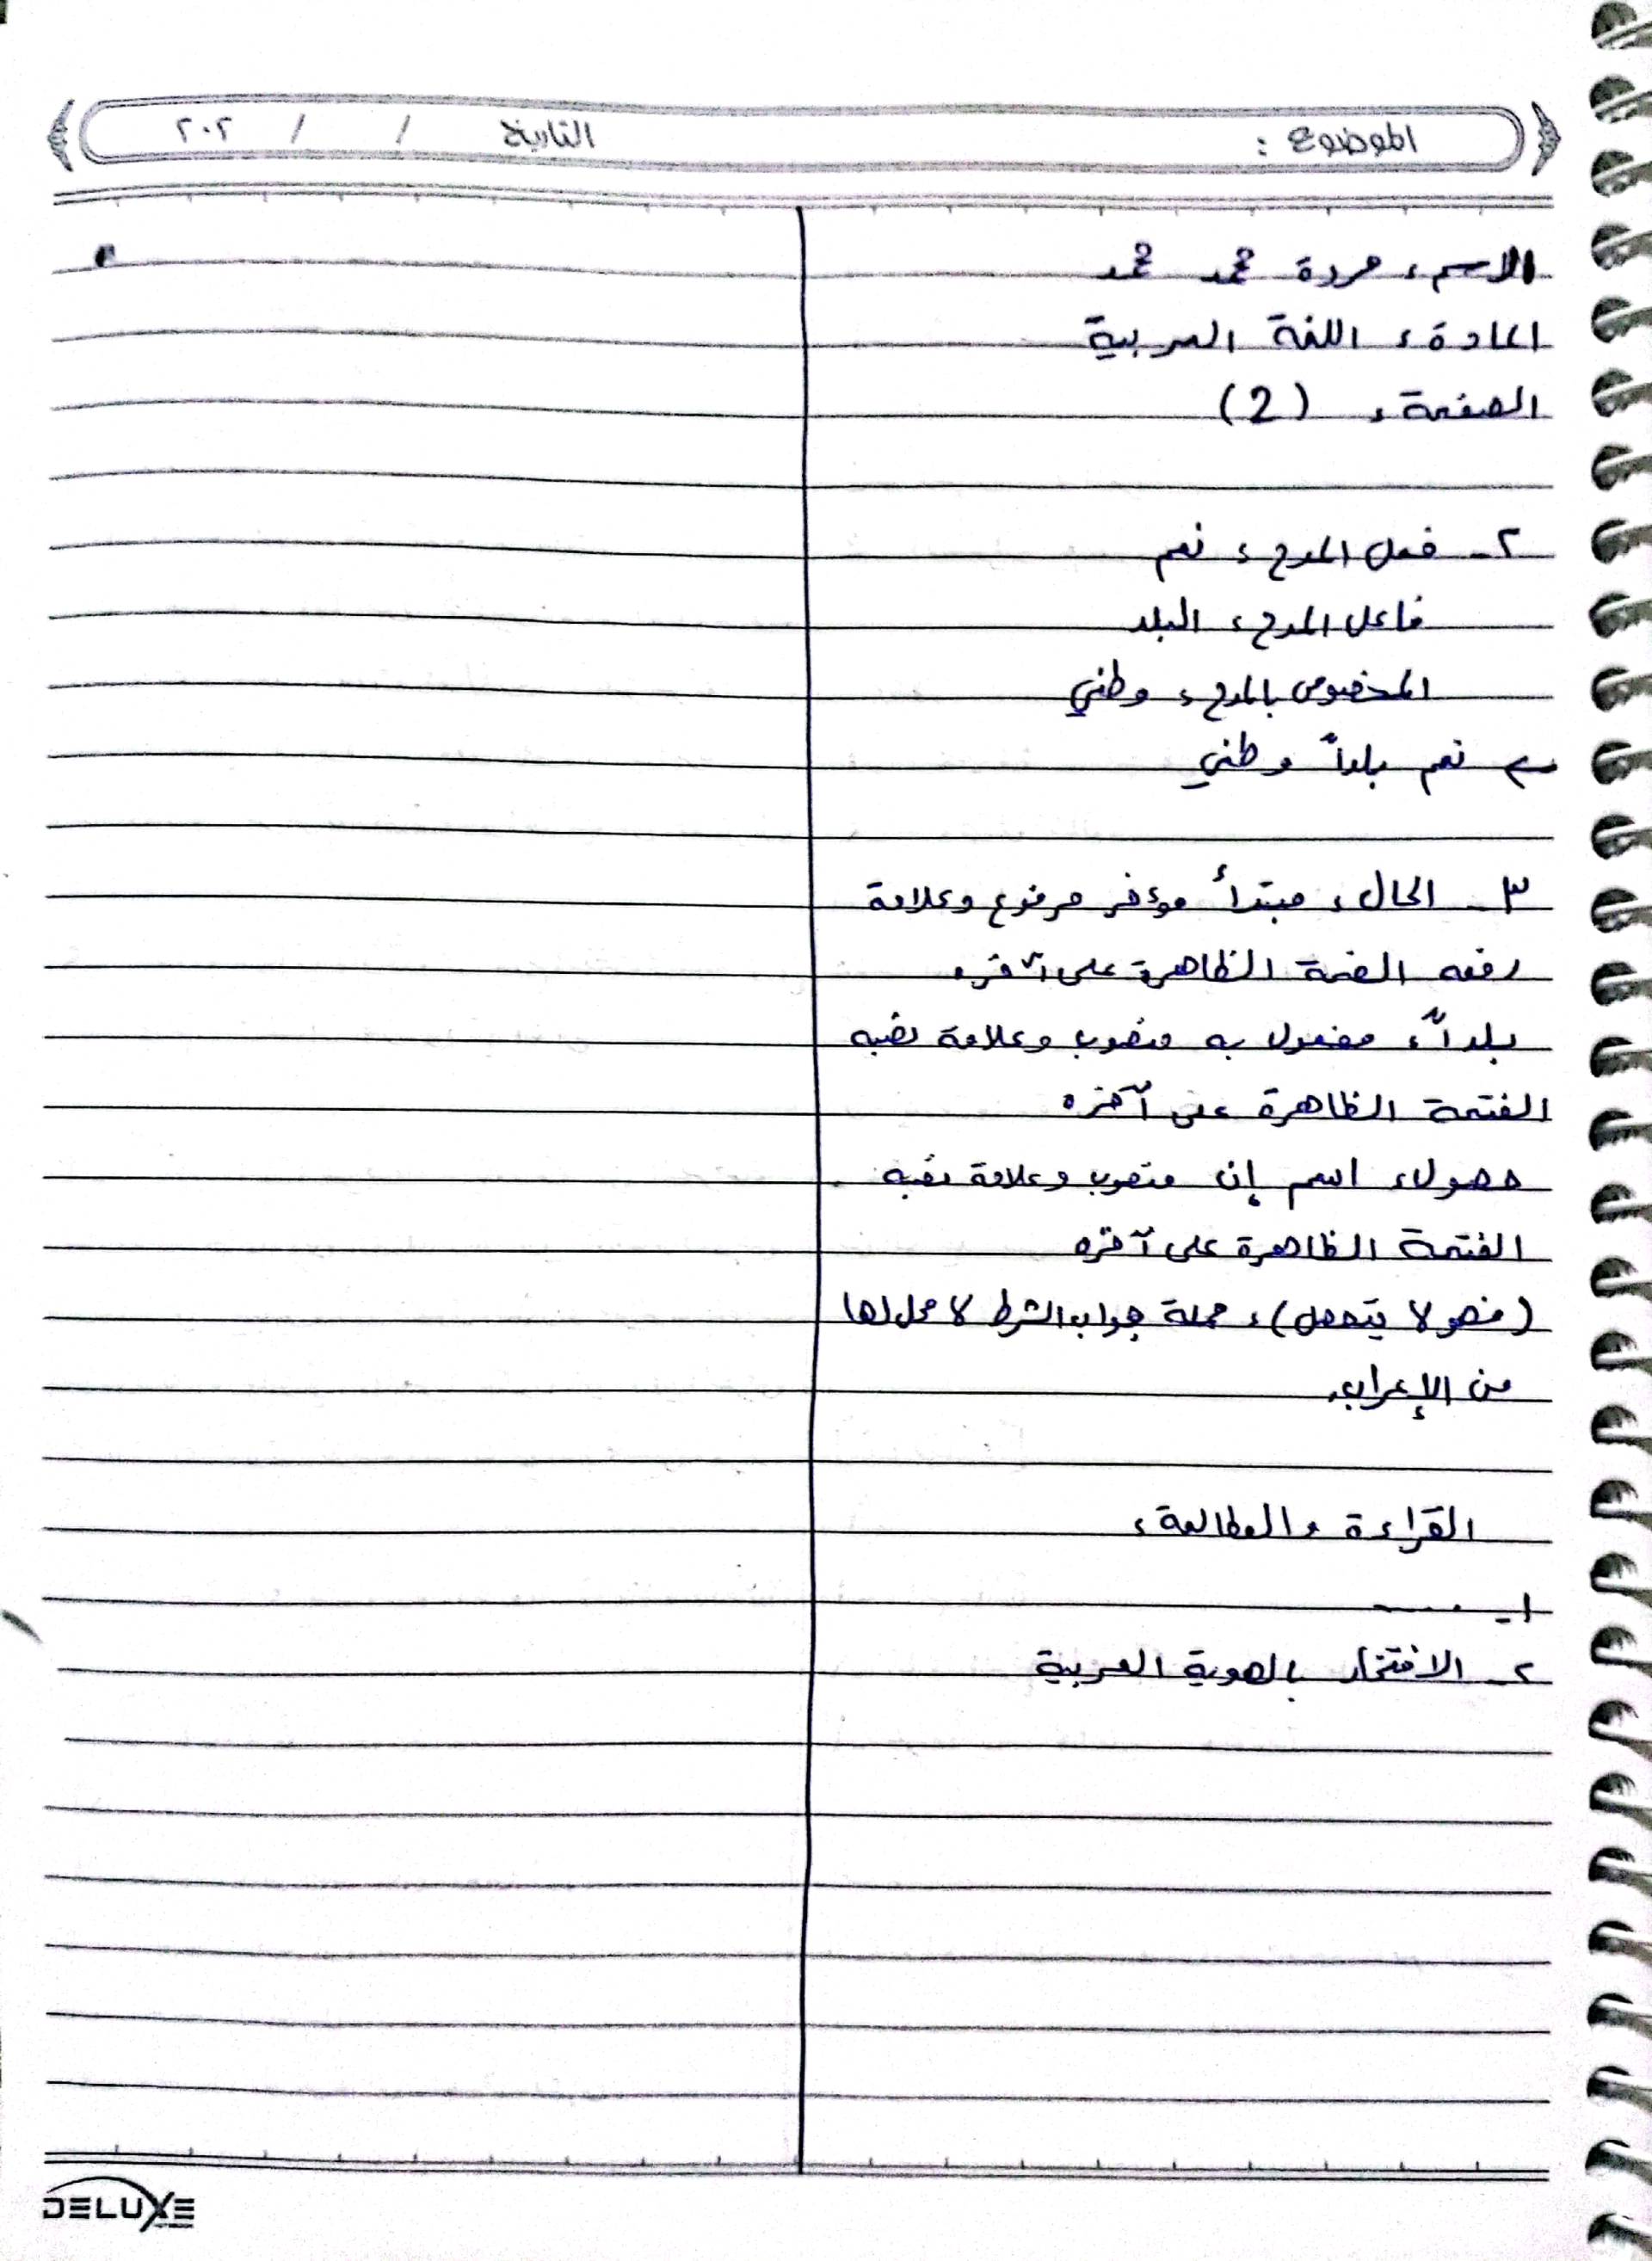 الموضوع : التاريخ / / ٢٠٢
الاسم: مروة محمد محمد
المادة: اللغة العربية
الصفحة: (2)
٢- فعل المدح: نعم
فاعل المدح: البلد
المخصوص بالمدح: وطني
← نعم بلداً وطني
٣- الحال: مبتدأ مؤخر مرفوع وعلامة
رفعه الضمة الظاهرة على آخره
بلداً: مفعول به منصوب وعلامة نصبه
الفتحة الظاهرة على آخره
حصول: اسم إن منصوب وعلامة نصبه
الفتحة الظاهرة على آخره
(فهو لا يتمهل): جملة جواب الشرط لا محل لها
من الإعراب.
القراءة والمطالعة:
١- .....
٢- الافتخار بالهوية العربية
DELUXE